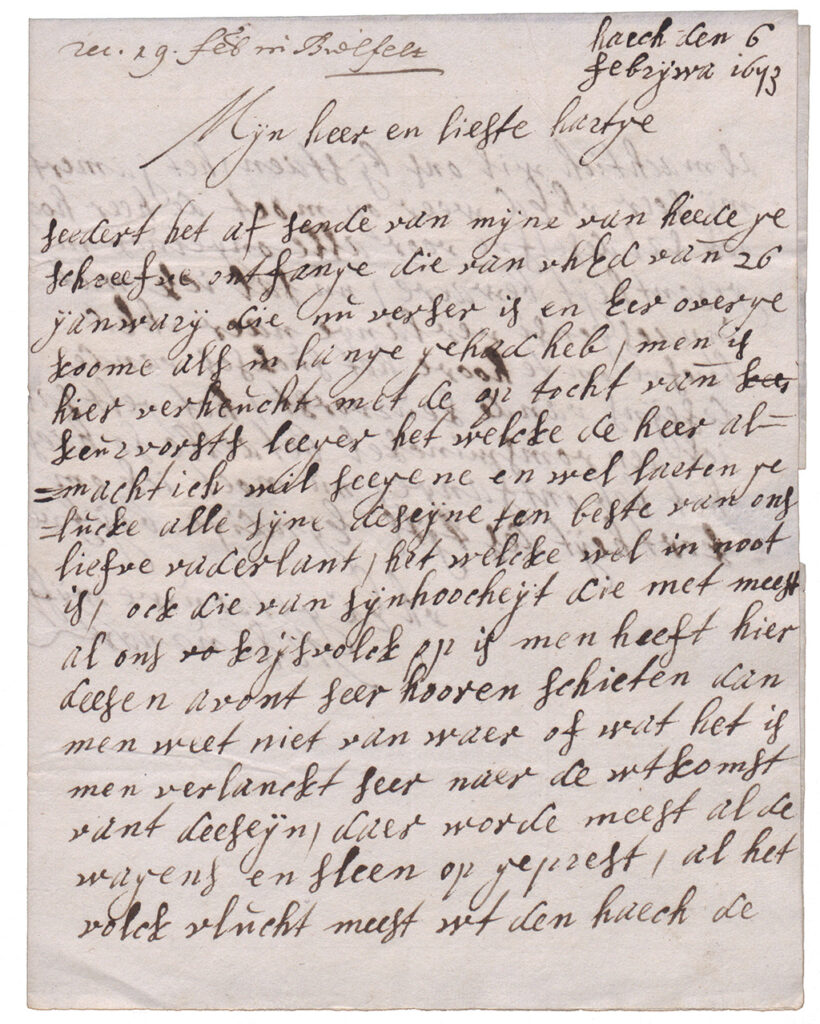 rec. 19. feb in Bielfelt
haech den 6
febrywa 1673
Mijn heer en liefste hartye
seedert het af sende van mijne van heede ge
schreefve ontfange die van uhEd van 26
yanwary die nu verser is en eer overge
koome als in lange gehad heb, men is
hier verheucht met de op tocht van
keurvorsts leeger het welcke de heer al=
=machtich wil seegene en wel laeten ge
=lucke alle sijne deseijne ten beste van ons
liefve vaderlant, het welcke wel in noot
is, ock die van sijnhoocheijt die met meest
al ons krijsvolck op is men heeft hier
deesen avont seer hooren schieten dan
men weet niet van waer of wat het is
men verlanckt seer naer de wtkomst
vant deeseijn, daer worde meest al de
wagens en sleen op geprest, al het
volck vlucht meest wt den haech de